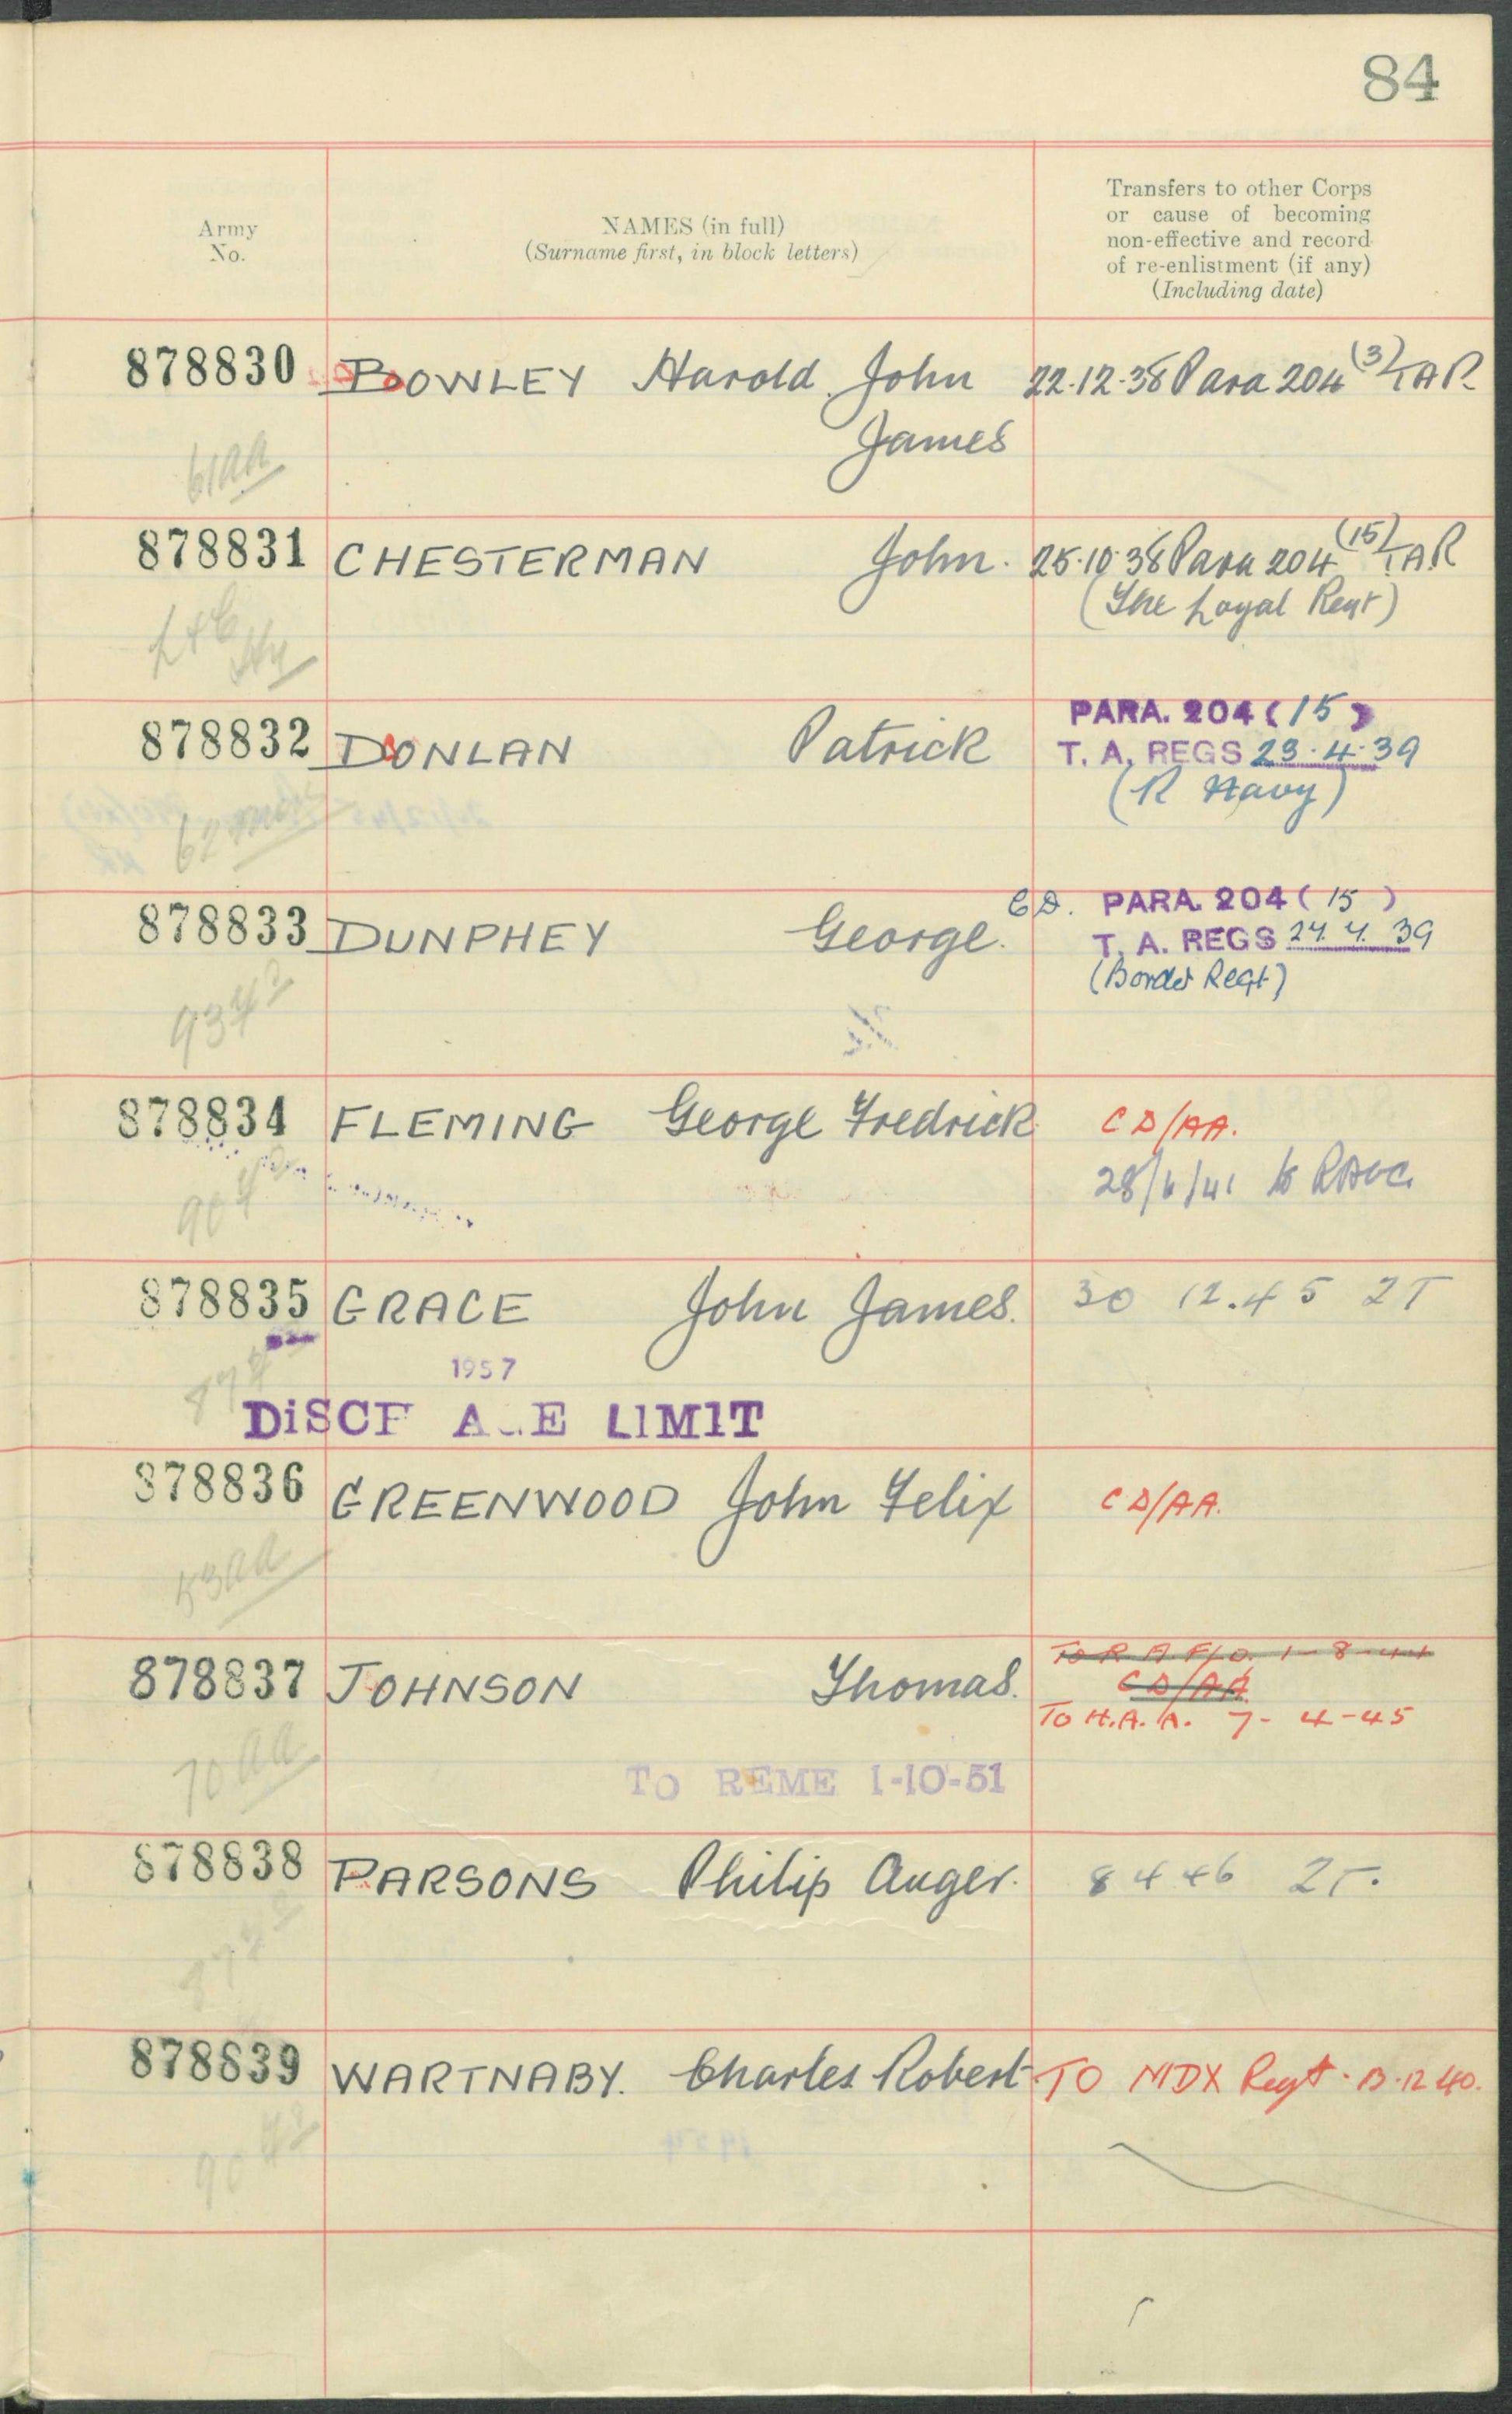 84
Army
No.
NAMES (in full)
(Surname first, in block letters)
Transfers to other Corps
or cause of becoming
non-effective and record
of re-enlistment (if any)
(Including date)
878830 BOWLEY Harold John 22.12.38 Para 204 (3) TAR
James
61AA
878831 CHESTERMAN John. 25.10.38 Para 204 (15) TAR
(The Loyal Regt)
878832 DONLAN Patrick PARA. 204 (15)
T. A. REGS 23.4.39
(R Navy)
62
878833 DUNPHEY George. CD. PARA. 204 (15)
T. A. REGS 24.4.39
(Border Regt)
878834 FLEMING George Fredrick CD/AA.
28/6/41 to RAOC.
878835 GRACE John James. 30 12.45 ZT
1957
DiSCH A E LIMIT
878836 GREENWOOD John Felix CD/AA.
53AA
878837 JOHNSON Thomas. TO R A F/D. 1-8-44
CD/AA
TO H.A.A. 7-4-45
70AA
TO REME 1-10-51
878838 PARSONS Philip Auger. 8 4 46 ZT.
878839 WARTNABY. Charles Robert TO MDX Regt. 13.12 40.